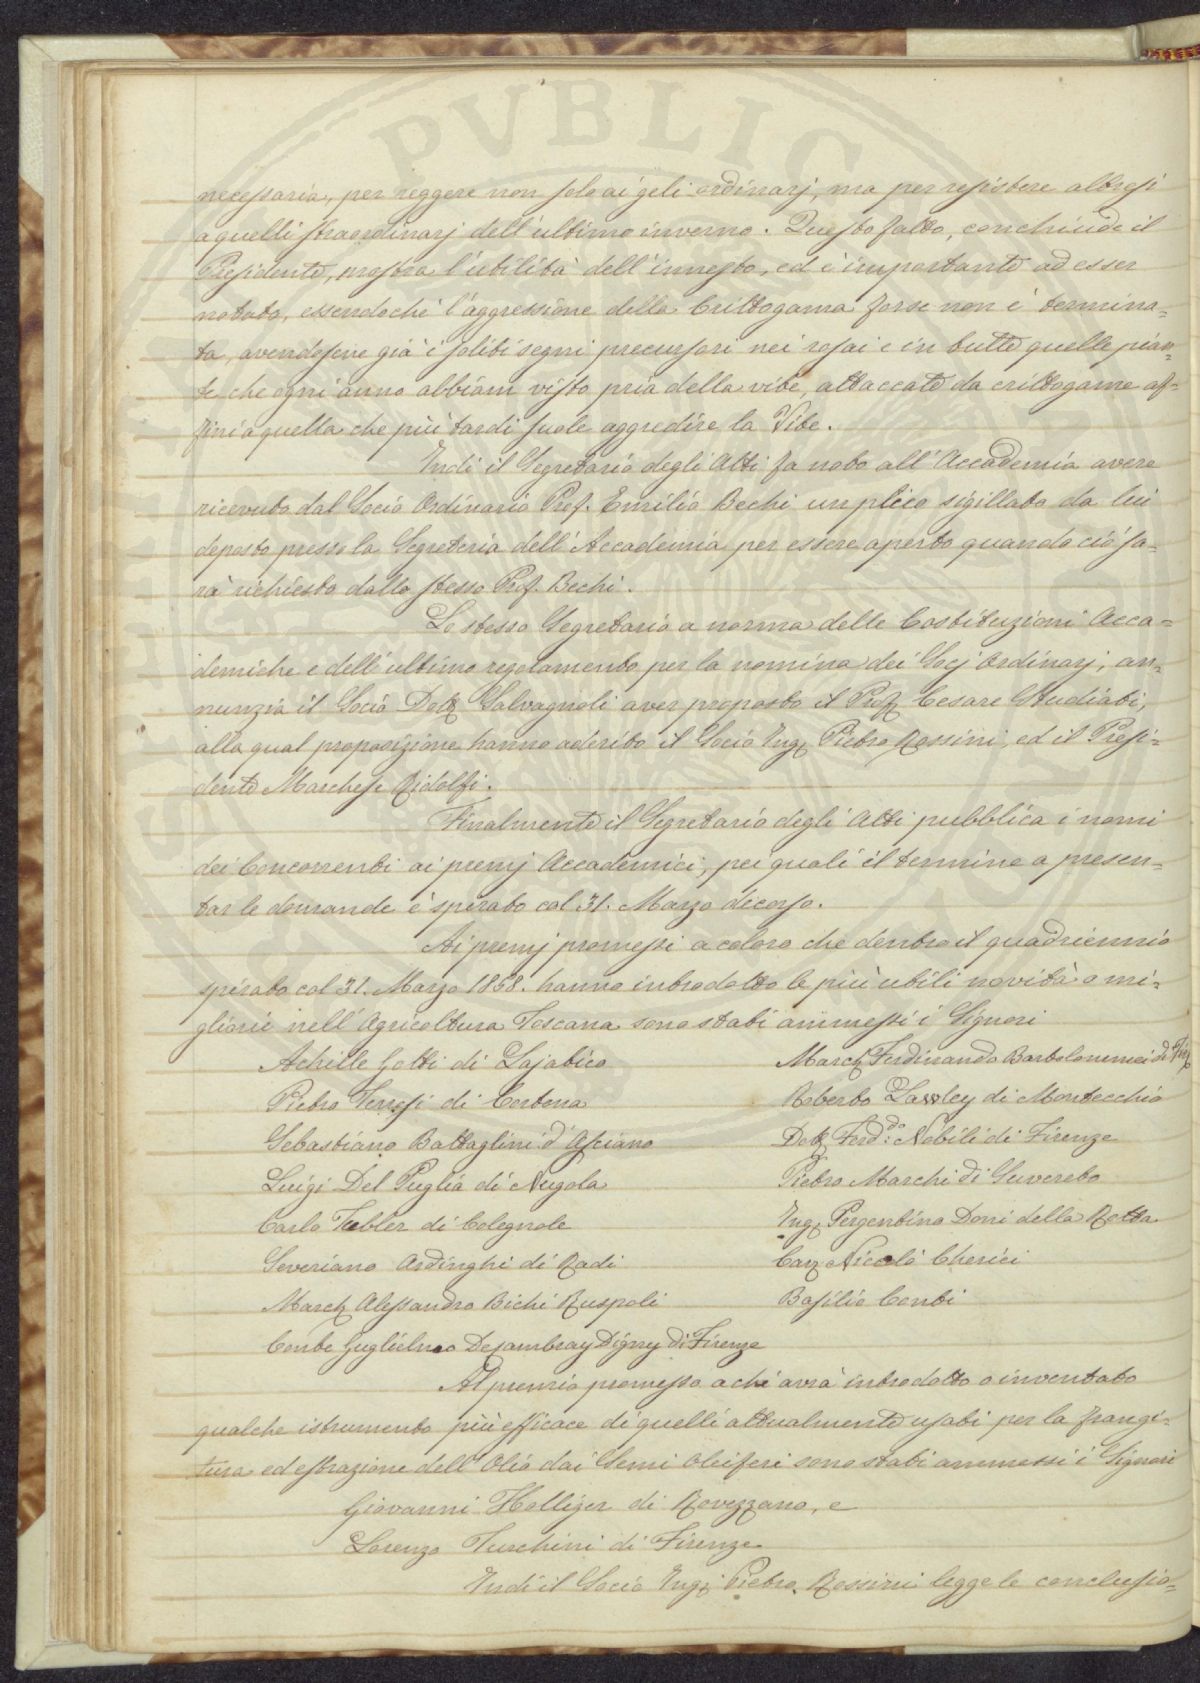 PVBLIC
necessaria, per reggere non solo ai geli ordinarj, ma per resistere altresi
a quelli straordinarj dell'ultimo inverno. Questo fatto, conchiude il
Presidente, mostra l'utilità dell'innesto, ed è importante ad esser
notato, essendochè l'aggressione della Crittogama forse non è termina=
ta, avendosene già i soliti segni precursori nei rosai e in tutte quelle pian=
te che ogni anno abbiam visto pria della vite, attaccate da crittogame af=
fini a quella che più tardi suole aggredire la Vite.
Indi il Segretario degli Atti fa noto all'Accademia avere
ricevuto dal Socio Ordinario Prof. Emilio Bechi un plico sigillato da lui
deposto presso la Segreteria dell'Accademia per essere aperto quando ciò sa=
rà richiesto dallo stesso Prof. Bechi.
Lo stesso Segretario a norma delle Costituzioni Acca=
demiche e dell'ultimo regolamento per la nomina dei Socj Ordinarj, an=
nunzia il Socio Dott. Salvagnoli aver proposto il Prof. Cesare Studiati,
alla qual proposizione hanno aderito il Socio Ing. Pietro Rossini, ed il Presi=
dente Marchese Ridolfi.
Finalmente il Segretario degli Atti pubblica i nomi
dei Concorrenti ai premj Accademici, pei quali il termine a presen=
tar le domande è spirato col 31. Marzo decorso.
Ai premj promessi a coloro che dentro il quadriennio
spirato col 31. Marzo 1858. hanno introdotto le più utili novità o mi=
gliorie nell'Agricoltura Toscana sono stati ammessi i Signori
Achille Gotti di Lajatico
March. Ferdinando Bartolommei di Fir.
Pietro Serrosi di Cortona
Roberto Lawley di Montecchio
Sebastiano Battaglini d'Asciano
Dott. Ferd.do Nobili di Firenze
Luigi Del Puglia di Nugola
Pietro Marchi di Suvereto
Carlo Tobler di Colegnole
Ing. Pergentino Doni della Rotta
Severiano Ardinghi di Radi
Cav. Niccolò Cherici
March. Alessandro Bichi Ruspoli
Basilio Conti
Conte Guglielmo Decambray Digny di Firenze
Al premio promesso a chi avrà introdotto o inventato
qualche istrumento più efficace di quelli attualmente usati per la frangi=
tura ed estrazione dell'Olio dai Semi Oleiferi sono stati ammessi i Signori
Giovanni Holliger di Rovezzano, e
Lorenzo Turchini di Firenze
Indi il Socio Ing. Pietro Rossini legge le conclusio=